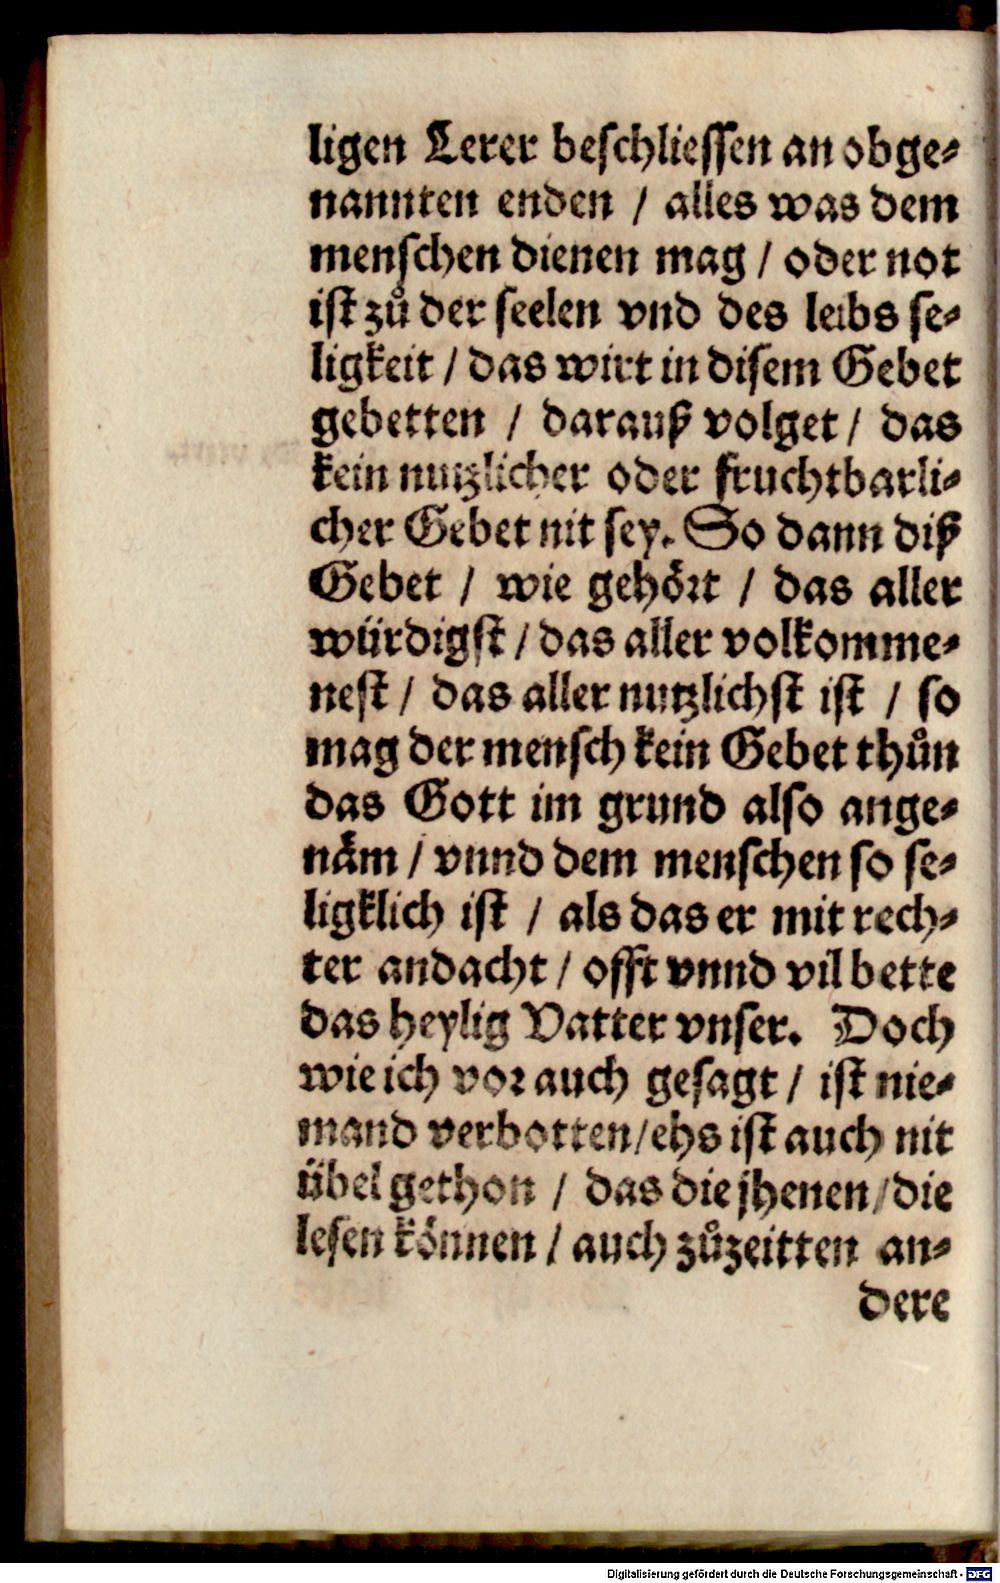 ligen Lerer beschliessen an obge⸗
nannten enden / alles was dem
menschen dienen mag / oder not
ist zů der seelen vnd des leibs se⸗
ligkeit / das wirt in disem Gebet
gebetten / darauß volget / das
kein nutzlicher oder fruchtbarli⸗
cher Gebet nit sey. So dann diß
Gebet / wie gehört / das aller
würdigst / das aller volkomme⸗
nest / das aller nutzlichst ist / so
mag der mensch kein Gebet thůn
das Gott im grund also ange⸗
näm / vnnd dem menschen so se⸗
ligklich ist / als das er mit rech⸗
ter andacht / offt vnnd vil bette
das heylig Vatter vnser. Doch
wie ich vor auch gesagt / ist nie⸗
mand verbotten / ehs ist auch nit
übel gethon / das die jhenen / die
lesen können / auch zůzeitten an⸗
dere
Digitalisierung gefördert durch die Deutsche Forschungsgemeinschaft - DFG